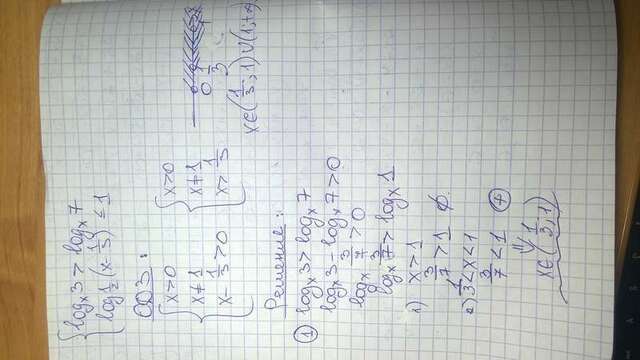 { logₓ3 > logₓ7
{ log½(x - 1/3) ≤ 1
ОДЗ:
{ x>0 { x>0
{ x≠1 { x≠1
{ x - 1/3 >0 { x> 1/3
0 1/3 1
x∈(1/3; 1)∪(1;+∞)
Решение:
① logₓ3 > logₓ7
logₓ3 - logₓ7 >0
logₓ 3/7 >0
logₓ 3/7 > logₓ1
1) x>1
3/7 >1 ∅.
2) 1/3<x<1
3/7 <1 ⊕
⇓
x∈(1/3; 1)